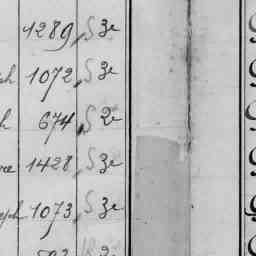 1289, S 3e
ph 1072, S 3e
h 674, S 2e
re 1428, S 3e
eph 1073, S 3e